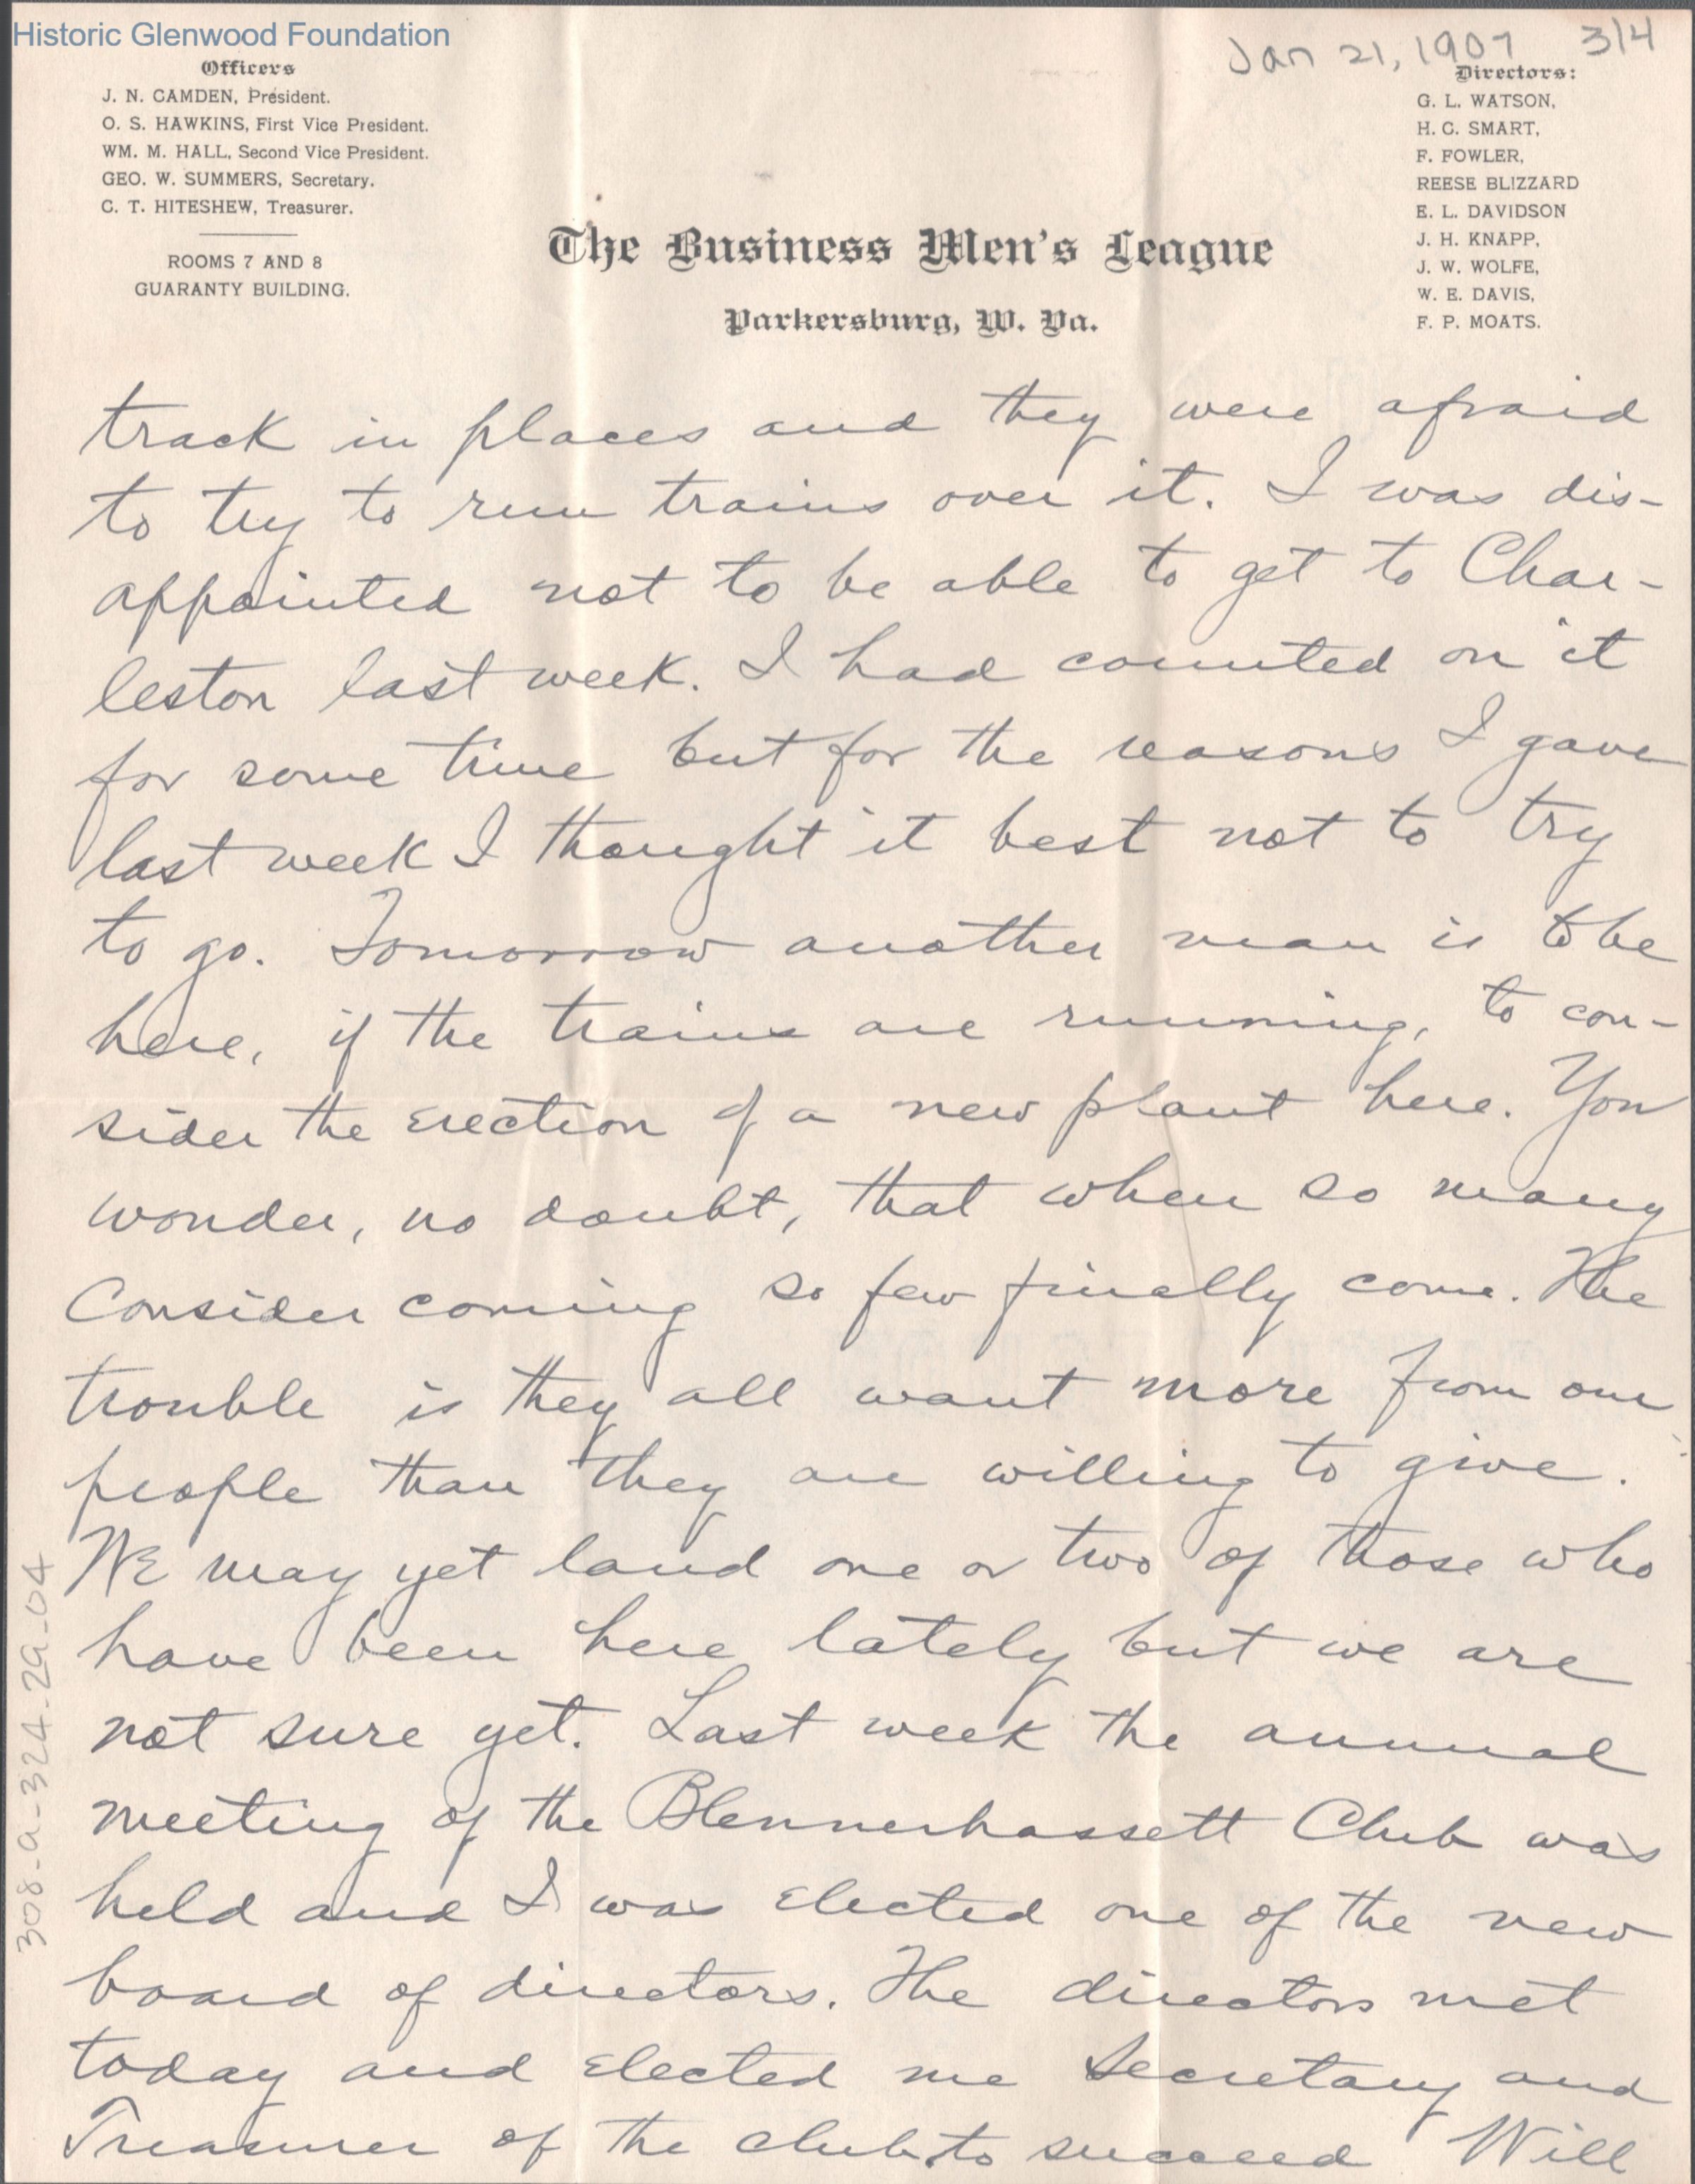 Historic Glenwood Foundation
Jan 21, 1907 3/4
Officers
J. N. CAMDEN, President.
O. S. HAWKINS, First Vice President.
WM. M. HALL, Second Vice President.
GEO. W. SUMMERS, Secretary.
C. T. HITESHEW, Treasurer.
ROOMS 7 AND 8
GUARANTY BUILDING.
Directors:
G. L. WATSON,
H. C. SMART,
F. FOWLER,
REESE BLIZZARD
E. L. DAVIDSON
J. H. KNAPP,
J. W. WOLFE,
W. E. DAVIS,
F. P. MOATS.
The Business Men's League
Parkersburg, W. Va.
track in places and they were afraid
to try to run trains over it. I was dis-
appointed not to be able to get to Char-
leston last week. I had counted on it
for some time but for the reasons I gave
last week I thought it best not to try
to go. Tomorrow another man is to be
here, if the trains are running, to con-
sider the erection of a new plant here. You
wonder, no doubt, that when so many
consider coming so few finally come. The
trouble is they all want more from our
people than they are willing to give.
We may yet land one or two of those who
have been here lately but we are
not sure yet. Last week the annual
meeting of the Blennerhassett Club was
held and I was elected one of the new
board of directors. The directors met
today and elected me Secretary and
Treasurer of the club to succeed Will
308-a-324-29-04